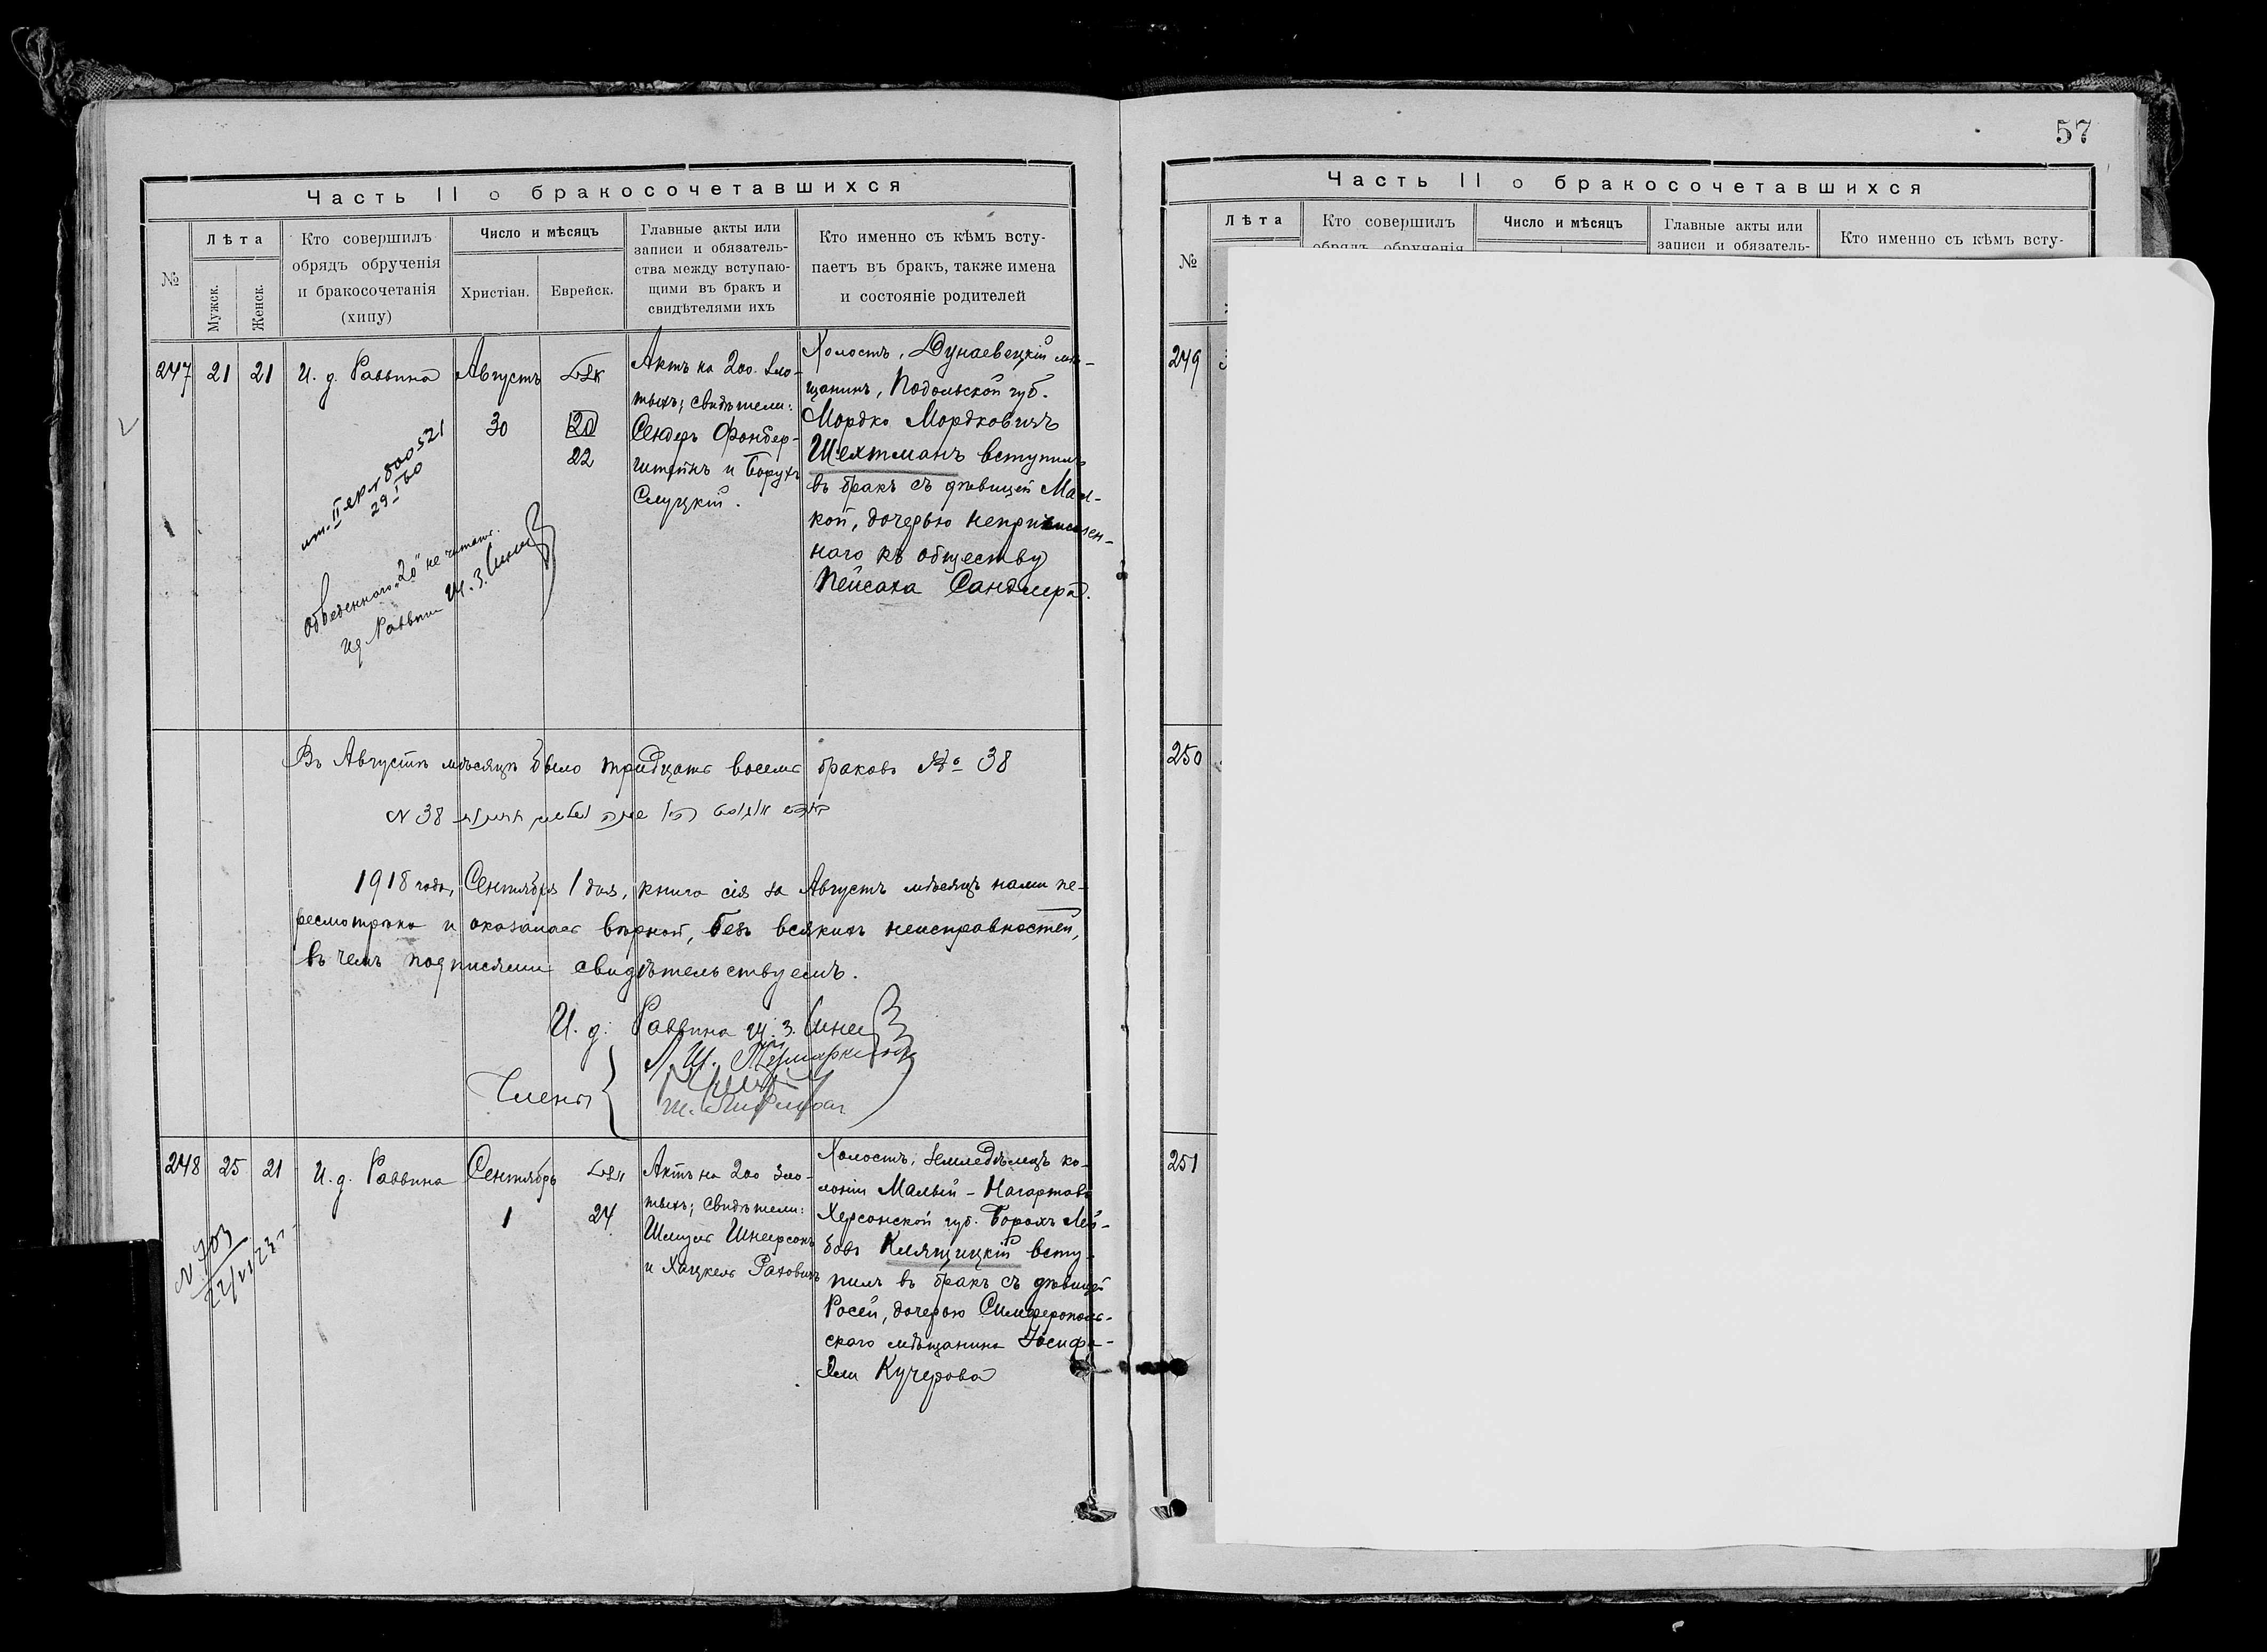 57
Часть II о бракосочетавшихся
№
Лѣта
Мужск.
Женск.
Кто совершилъ
обрядъ обрученія
и бракосочетанія
(хипу)
Число и мѣсяцъ
Христіан.
Еврейск.
Главные акты или
записи и обязатель-
ства между вступаю-
щими въ бракъ и
свидѣтелями ихъ
Кто именно съ кѣмъ всту-
паетъ въ бракъ, также имена
и состояніе родителей
247
21
21
И. д. Раввина
Августъ
30
20
22
Актъ на 200 зло-
тыхъ; свидѣтели:
Сендеръ Фонбер-
штейнъ и Борухъ
Слуцкій.
Холостъ, Дунаевецкій мѣ-
щанинъ, Подольской губ.
Мордко Мордковичъ
Шехтманъ вступилъ
въ бракъ съ дѣвицей Мал-
кой, дочерью неприписен-
наго къ обществу
Пейсаха Сандлера.
29 I 60
Обведенного „20" не читать.
Ид Раввина
Въ Августѣ мѣсяцѣ было тридцать восемь браковъ № 38
N 38
1918 года, Сентября 1 дня, книга сія за Августъ мѣсяцъ нами пе-
ресмотрѣна и оказалась вѣрной, безъ всякихъ неисправностей,
въ чемъ подписями свидѣтельствуемъ.
И. д. Раввина
Члены
248
25
21
И. д. Раввина
Сентябрь
1
24
Актъ на 200 зло-
тыхъ; свидѣтели:
Шмуль Шнеерсонъ
и Хацкель Раховичъ
Холостъ, земледѣлецъ ко-
лоніи Малый-Нагартавъ
Херсонской губ. Борохъ Лей-
бовъ Клящицкій всту-
пилъ въ бракъ съ дѣвицей
Росей, дочерью Симферополь-
скаго мѣщанина Іосифа-
Эли Кучерова
N 703
Часть II о бракосочетавшихся
№
Лѣта
Кто совершилъ
обрядъ обрученія
Число и мѣсяцъ
Главные акты или
записи и обязатель-
Кто именно съ кѣмъ всту-
249
250
251